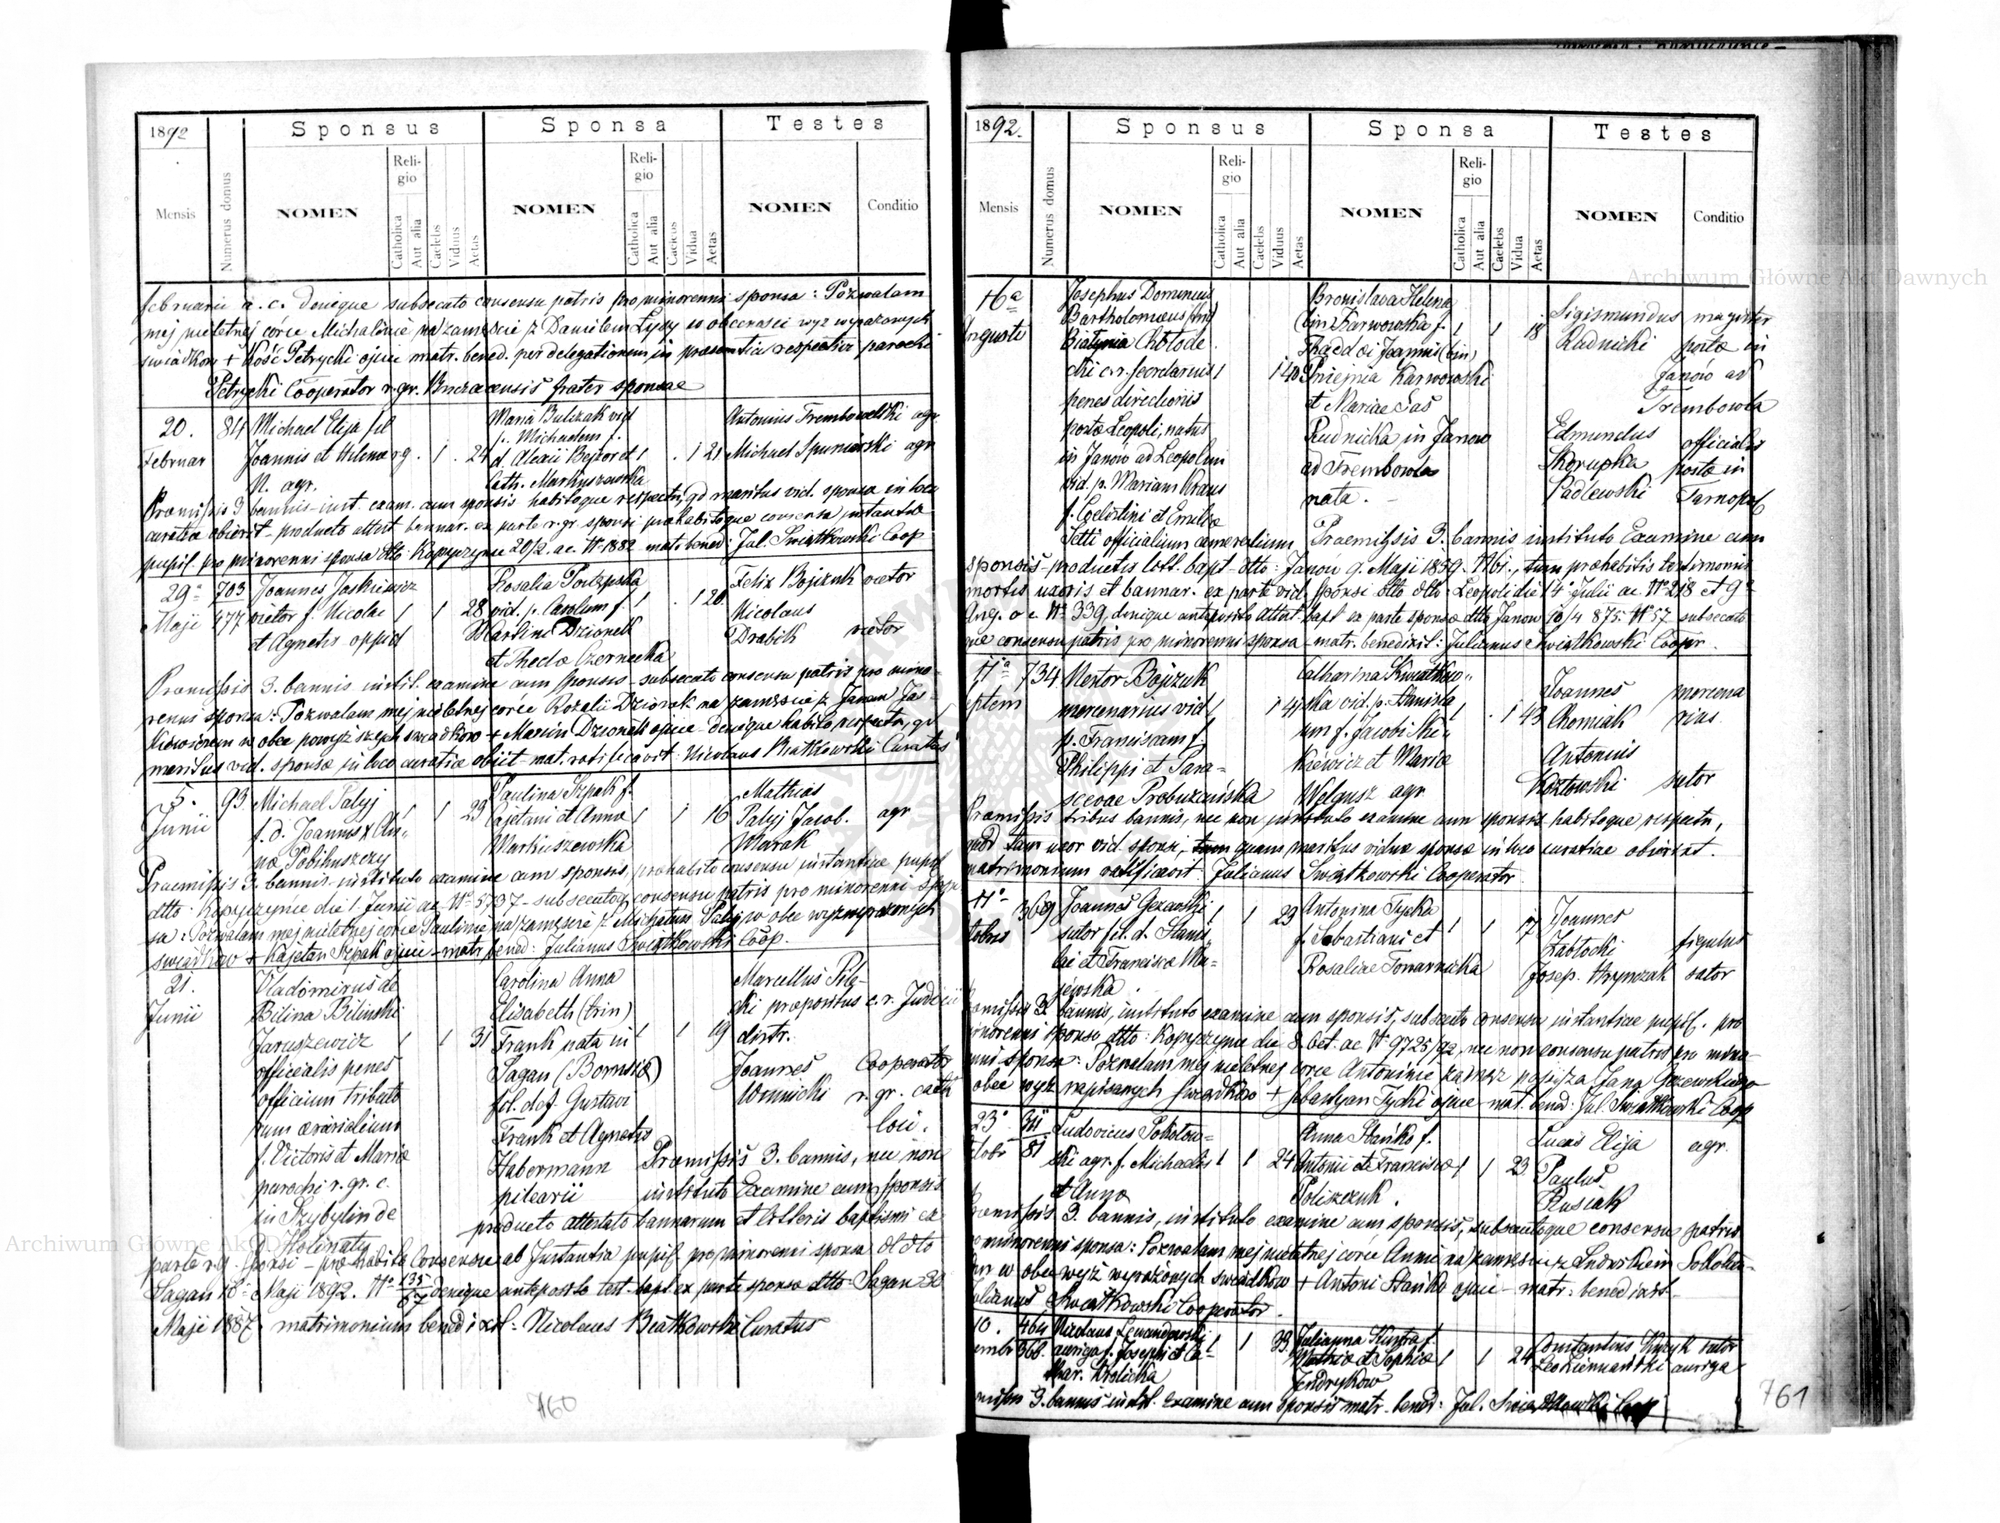 1892
Sponsus
Sponsa
Testes
Mensis
Numerus domus
NOMEN
Religio
Catholica
Aut alia
Caelebs
Viduus
Aetas
NOMEN
Religio
Catholica
Aut alia
Caelebs
Vidua
Aetas
NOMEN
Conditio
februarii a. c. Denique subsecuto consensu patris pro minorenni sponsa: Pozwalam
mej nieletniej córce Michalinie na zamęście z Danilem Łysy w obecności wyż wyrażonych
świadków + Kość Petrycki ojciec matr. bened. per delegationem in praesentia respectivi parochi
Petrycki Cooperator r. gr. frater sponsae
20. Februar
84
Michael Elija fil
Joannis et Helenae r g. 1 24
N. agr.
Maria Bulczak vid
p. Michaelem f.
d. Alexii 1 1 21
Cath. Markuszewska
Antonius Trembowelski agr
Michael agr
Praemissis 3 bannis inst. exam. cum sponsis habitoque respectu, qd maritus vid. sponsae in loco
curatiae obierit - producto attest bannar. ex parte r. gr. sponsi praehabitoque consensu instantiae
pupil. pro minorenni sponsa dtto Kopyczyńce 20/2. ac. N. 1882 matr bened: Jul. Świątkowski Coop
29a Maji
703
477
Joannes Jaskiewicz
vietor f. Nicolai 1 1 28
et Agnetis oppid
Rosalia
vid. p. Carolum f. 1 1 20
Martini Dzionek
et Theclae Czernecka
Felix Bojczuk vietor
Nicolaus
Drabik vietor
Praemissis 3. bannis instit. examine cum sponsis - subsecuto consensu patris pro mino-
renni sponsa: Pozwalam mej nieletniej córce Rozalii Dzionek na zamęście z Janem Jas-
kiewiczem w obec powyższych świadków + Marcin Dzionek ojciec denique habito respectu, qd
maritus vid. sponsae in loco curatiae obiit - mat. ratificavit: Nicolaus Białkowski Curatus
5. Junii
93
Michael Palyj 1 1 23
f. d. Joannis x An-
nae Pobihuszczy
Paulina Szpak f.
Cajetani et Annae 1 1 16
Markuszewska
Mathias
Palyj Jacob. agr
Marak
Praemissis 3. bannis instituto examine cum sponsis, praehabito consensu instantiae pupil
dtto: Kopyczyńce die 1. Junii ac. N. 5737 - subsecutoq consensu patris pro minorenni spon
sa: Pozwalam mej nieletniej córce Paulinie na zamęście z Michałem Palyj w obec wyż wyrażonych
świadków + Kajetan Szpak ojciec - matr. bened: Julianus Świątkowski Coop.
21. Junii
Vladimirus de
Bilina Bilinski
Jaruszewicz 1 1 31
officialis penes
officium tributo
rum aerarialium
f. Victoris et Mariae
parochi r. gr. c.
in Szybylin de
g. Holinaty
Carolina Anna
Elisabeth (trin)
Frank nata in 1 1 19
Sagan (Borussiae)
fil. def. Gustavi
Frank et Agnetis
Habermann
pilearii
Marcellus Pile-
cki praepositus c. r. Judicii
distr.
Joannes Cooperator
Winnicki r. gr. cath
loci.
Praemissis 3. bannis, nec non
instituto Examine cum sponsis
producto attestato bannarum et litteris baptismi ex
parte r. g. sponsi - praehabito Consensu ab Instantia pupil. pro minorenni sponsa ddto
Sagan 18 Maji 1892. No 135/67 denique anteposito test. bapt ex parte sponsae dtto: Sagan 30
Maji 1887. matrimonium benedixit: Nicolaus Białkowski Curatus
760
1892.
Sponsus
Sponsa
Testes
Mensis
Numerus domus
NOMEN
Religio
Catholica
Aut alia
Caelebs
Viduus
Aetas
NOMEN
Religio
Catholica
Aut alia
Caelebs
Vidua
Aetas
NOMEN
Conditio
16a
Augusti
Josephus Dominicus
Bartholomaeus (trin)
Białynia Chłode
cki c. r. secretarius 1 1 40
penes directionis
postae Leopoli, natus
in Janów ad Leopolim
vid. p. Mariam Kraus
f. Coelestini et Emiliae
Setti officialium cameralium
Bronislava Helena
bin Karwowska f. 1 1 18
Thaddei Joannis (bin)
Karwowski
et Mariae Sas
Rudnicka in Janow
ad Trembowla
nata.
Sigismundus magister
Rudnicki postae in
Janów ad
Trembowla
Edmundus officialis
Skorupka postae in
Padlewski Tarnopol
Praemissis 3. bannis instituto Examine cum
sponsis - productis litt. bapt - dtto: Janów 9. Maji 1859. N. 61., tum praehabitis testimoniis
mortis uxoris et bannar. ex parte vid. sponsi dtto dtto: Leopoli die 14 Julii ac. No 218 et 9a
Aug. a c No 339, denique anteposito Attest. bapt ex parte sponsae dtto Janow 10/4 875. No 57 subsecuto
que consensu patris pro minorenni sponsa - matr. benedixit: Julianus Świątkowski Coopr.
11a
ptem
734
Nestor Bojczuk
mercenarius vid 1 1 41
p. Franciscam f.
Philippi et Para-
scevae Probużańska
Catharina Kwiatkow-
ska vid. p. Stanisla 1 1 43
um f. Jacobi Mic-
kiewicz et Mariae
Welgusz agr
Joannes mercena
Chomiak rius
Antonius
Kozłowski sutor
Praemissis tribus bannis, nec non instituto examine cum sponsis habitoque respectu,
quod tam uxor vid. sponsi, tum quam maritus viduae sponsae in loco curatiae obierint.
matrimonium ratificavit Julianus Świątkowski Cooperator
11a
tobris
369
Joannes Gezewski 1 1 23
sutor fil. d. Stanis
lai et Franciscae Ma-
jewska.
Antonina Tycka
f. Sebastiani et 1 1 17
Rosaliae Towarnicka
Joannes
Zabłocki figulus
Josep. Hrynczak sutor
aemissis 3. bannis, instituto examine cum sponsis, subsecuto consensu instantiae pupil. pro
minorenni sponso dtto: Kopyczyńce die 8. bet. ac No 9725/92, nec non consensu patris pro mino-
renni sponsa: Pozwalam mej nieletniej córce Antoninie zamąż pójść za Jana Gezewskiego
obec wyż zapisanych świadków + Sebastyan Tycki ojciec - mat. bened: Jul. Świątkowski Coop
23a
tobr
81
Ludovicus Sokołow-
ski agr. f. Michaelis 1 1 24
et Anna
Anna Stańko f.
Antonii et Franciscae 1 1 23
Poliszczuk.
Lucas Elija agr.
Paulus
Rusiak
aemissis 3. bannis, instituto examine cum sponsis, subsecutoque consensu patris
minorenni sponsa: Pozwalam mej nieletniej córce Annie na zamęście z Ludwikiem Sokołow-
w obec wyż wyrażonych świadków + Antoni Stańko ojciec - matr. benedixit.
Julianus Świątkowski Cooperator.
10.
embr
464
368.
Nicolaus Lewandowski 1 1 33
auriga f. Josephi et Ca-
thar. Królicka
Julianna Kuszta f.
Mathiae et Sophiae 1 1 24
Jendryków
Constantinus sutor
Leo auriga
emissis 3. bannis instit. examine cum sponsis matr. bened: Jul. Świątkowski Coop
761
Archiwum Główne Akt Dawnych
Archiwum Główne Akt Dawnych